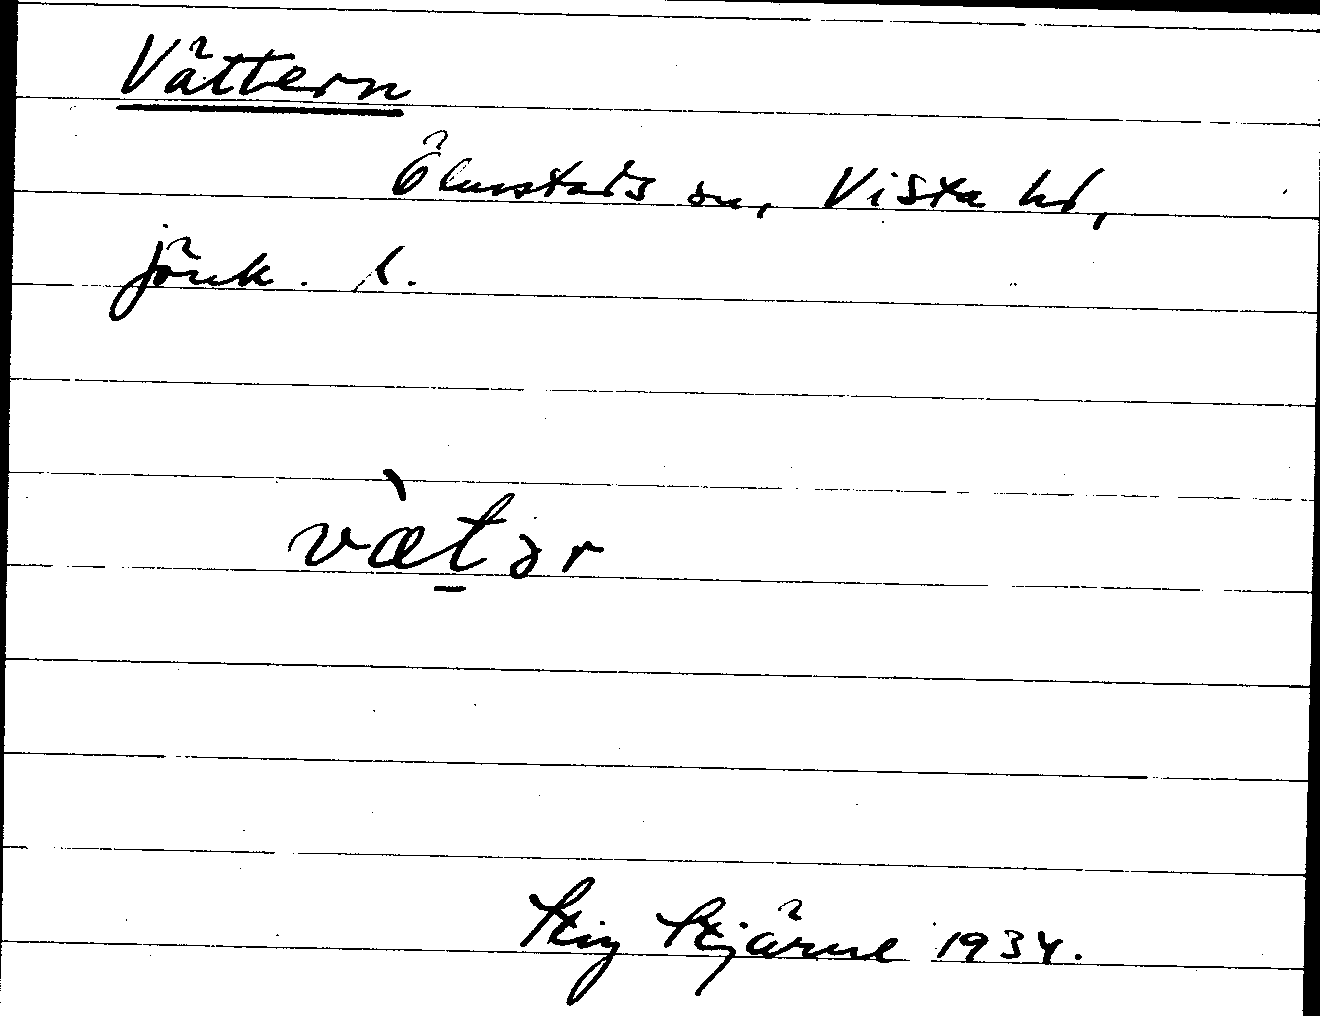 Vättern
Ölmstads sn, Vista hd,
Jönk. l.
vætər
Stig Stjärne 1934.